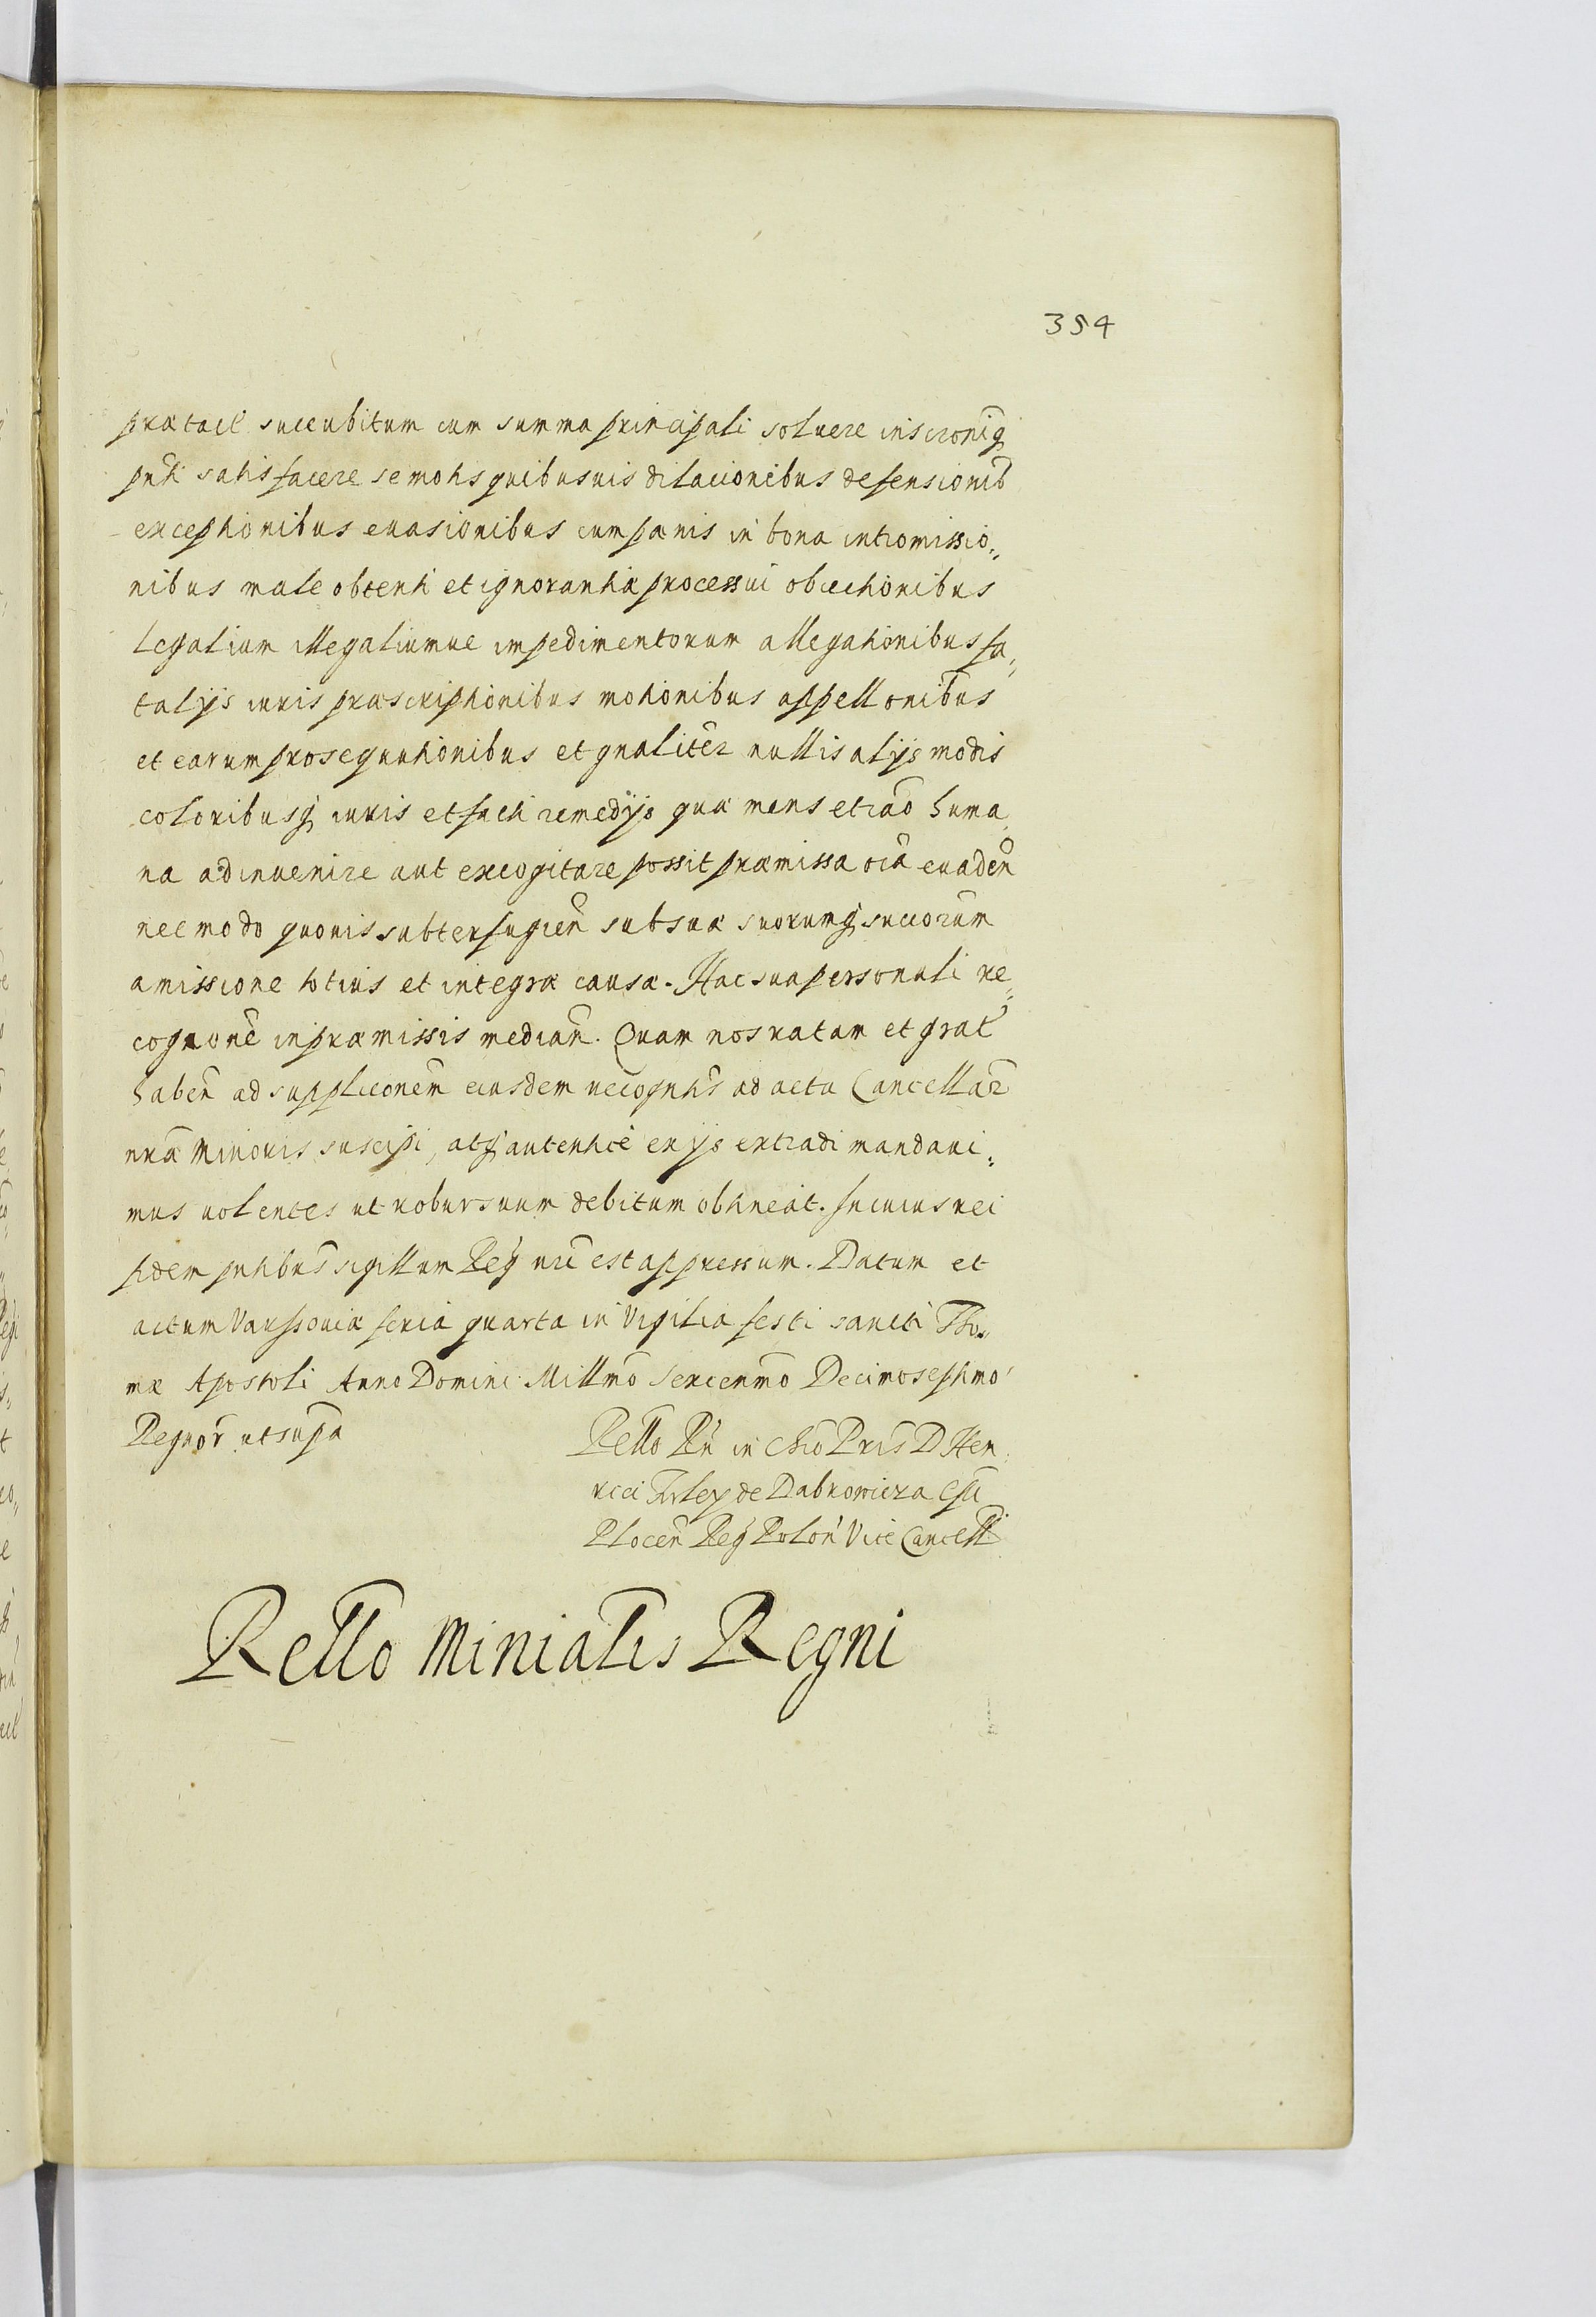 354
prætacti succubitum cum summa principali soluere inscronīq
pnti satisfacere semotis quibusuis dilacionibus defensionib
exceptionibus euasionibus cum pœnis in bona intromissio„
nibus male obtenti et ignorantiæ processui obiectionibus
legalium illegaliumue impedimentorum allegationibus fa„
talijs iuris præscriptionibus motionibus appellonibus
et earum prosequutionibus et gnaliter nullis alijs modis
coloribusq iuris et facti remedijs quæ mens et rao huma„
na adinuenire aut excogitare possit præmissa oia euaden
nec modo quouis subterfugien sub suæ suorumq succorum
amissione totius et integræ causæ. Hac sua personali re„
cognone in præmissis median. Quam nos ratam et grat
haben ad supplicionem eiusdem recogntis ad acta Cancellar
nræ Minoris suscipi, atq autentice ex ijs extradi mandaui„
mus uolentes ut robur suum debitum obtineat. In cuius rei
fidem pntibus sigillum Reg nri est appressum. Datum et
actum Varssouiæ feria quarta in Vigilia festi sancti Tho„
mæ Apostoli Anno Domini Millmo Sexcenmo Decimoseptimo
Regnor ut supa
Rello Rn in Chro Pris D Hen„
rici Firley de Dabrowicza Epi
Plocen Reg Polon Vice Cancell
Rello Minialis Regni